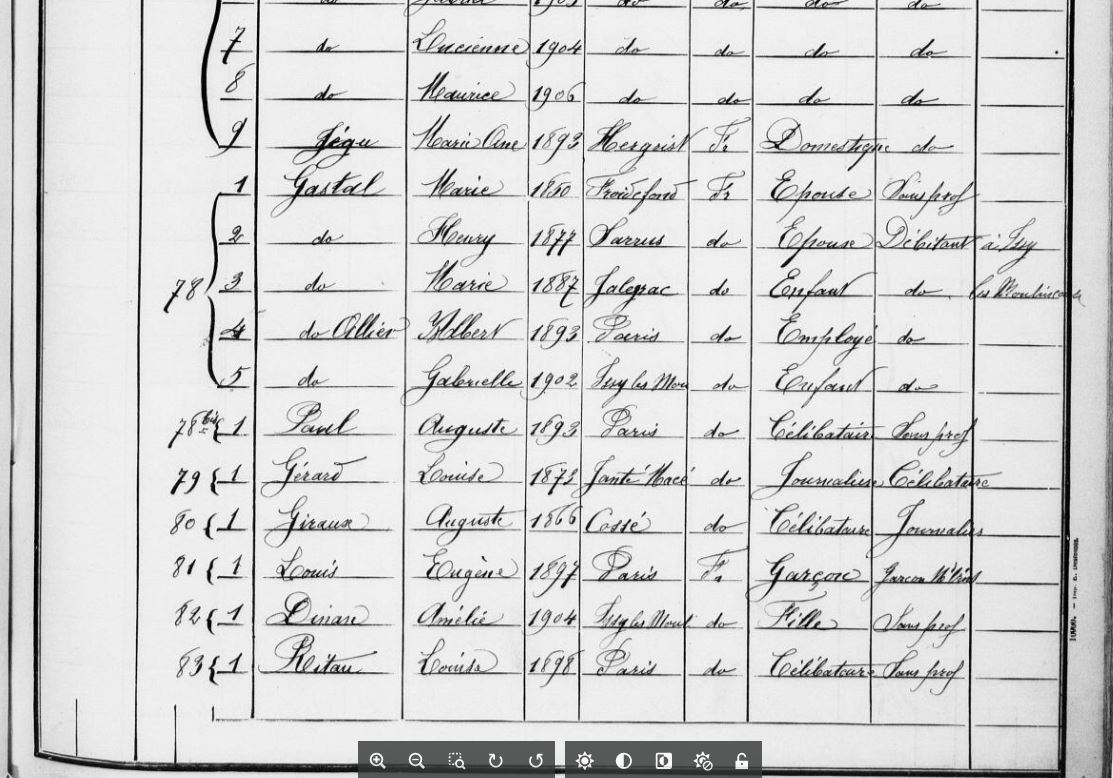 7 do Lucienne 1904 do do do do
8 do Maurice 1906 do do do do
9 Jégu Marie Ane 1893 Hergrist Fr Domestique do
1 Gastal Marie 1850 Froidefond Fr Epouse Sans prof
2 do Henry 1877 Sarrus do Epouse Débitant à Issy
78 3 do Marie 1887 Jaleyrac do Enfant do les Moulineaux
4 do Ollier Albert 1893 Paris do Employé do
5 do Gabrielle 1902 Issy les Mou do Enfant do
78 bis 1 Paul Auguste 1893 Paris do Célibataire Sans prof
79 1 Gérard Louise 1873 do Journalière Célibataire
80 1 Giraux Auguste 1866 Cossé do Célibataire Journalier
81 1 Louis Eugène 1897 Paris Fr Garçon Garçon
82 1 Dinan Amélie 1904 Issy les Moul do Fille Sans prof
83 1 Ritau Louise 1898 Paris do Célibataire Sans prof